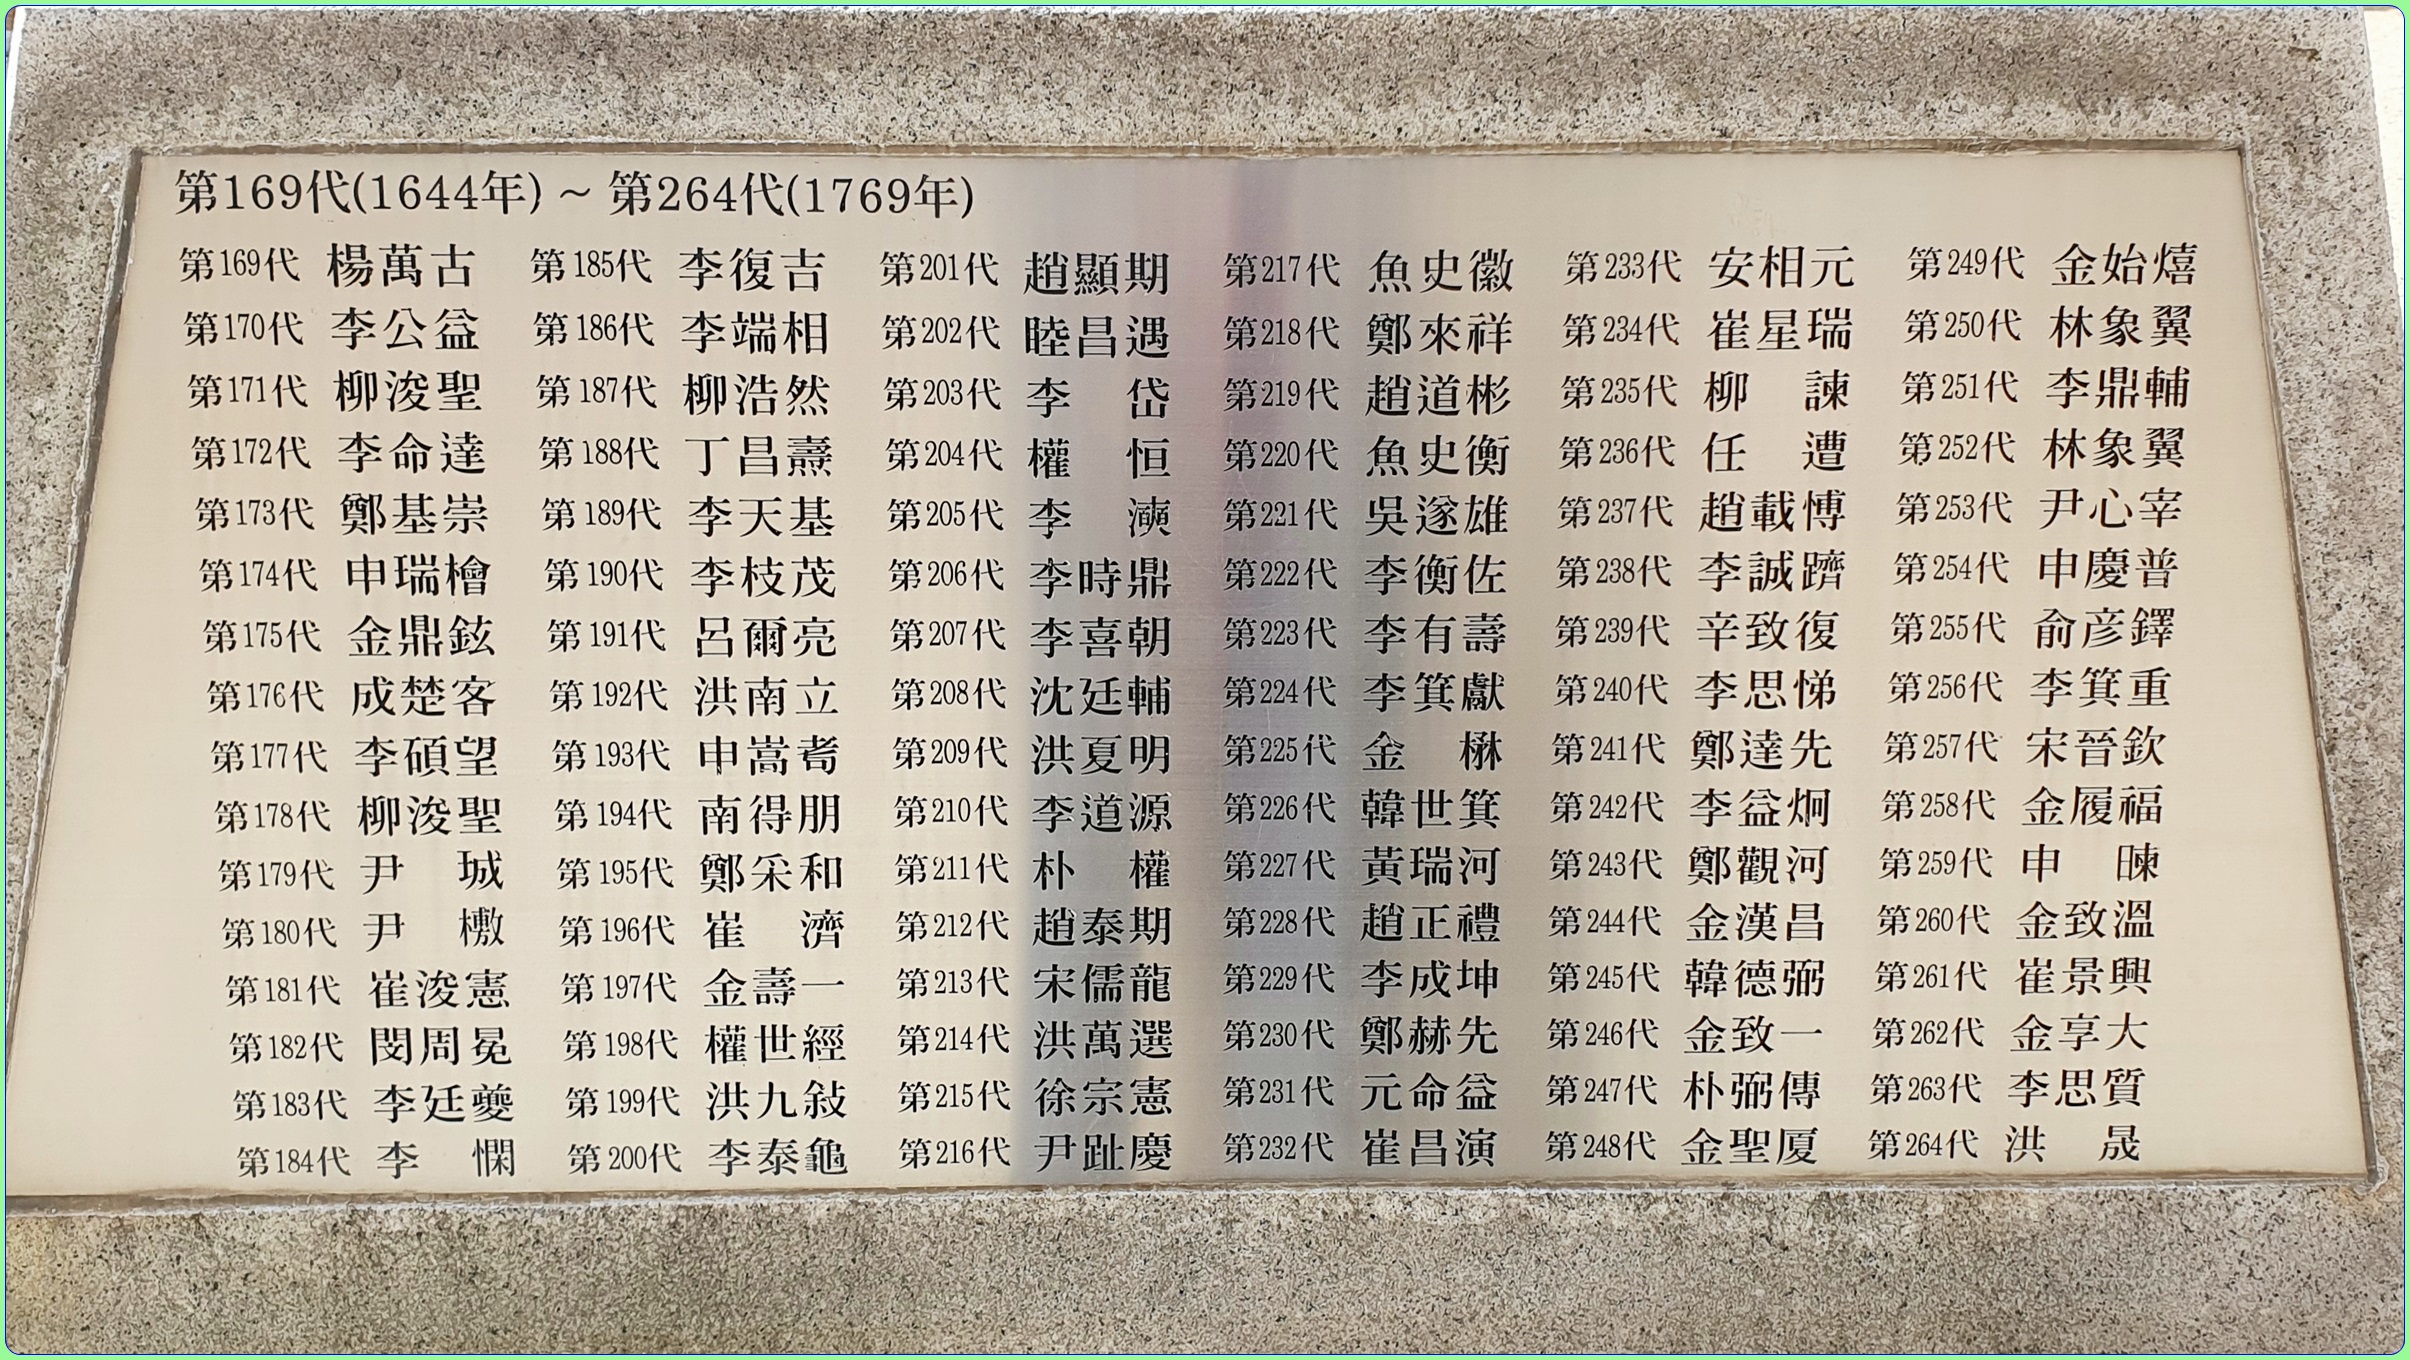 第169代(1644年) ~ 第264代(1769年)
第169代 楊萬古 第185代 李復吉 第201代 趙顯期 第217代 魚史徽 第233代 安相元 第249代 金始熺
第170代 李公益 第186代 李端相 第202代 睦昌遇 第218代 鄭來祥 第234代 崔星瑞 第250代 林象翼
第171代 柳浚聖 第187代 柳浩然 第203代 李 岱 第219代 趙道彬 第235代 柳 諫 第251代 李鼎輔
第172代 李命達 第188代 丁昌燾 第204代 權 恒 第220代 魚史衡 第236代 任 遭 第252代 林象翼
第173代 鄭基崇 第189代 李天基 第205代 李 第221代 吳遂雄 第237代 趙載慱 第253代 尹心宰
第174代 申瑞檜 第190代 李枝茂 第206代 李時鼎 第222代 李衡佐 第238代 李誠躋 第254代 申慶普
第175代 金鼎鉉 第191代 呂爾亮 第207代 李喜朝 第223代 李有壽 第239代 辛致復 第255代 俞彦鐸
第176代 成楚客 第192代 洪南立 第208代 沈廷輔 第224代 李箕獻 第240代 李思悌 第256代 李箕重
第177代 李碩望 第193代 申嵩耉 第209代 洪夏明 第225代 金 楙 第241代 鄭達先 第257代 宋晉欽
第178代 柳浚聖 第194代 南得朋 第210代 李道源 第226代 韓世箕 第242代 李益炯 第258代 金履福
第179代 尹 珹 第195代 鄭采和 第211代 朴 權 第227代 黃瑞河 第243代 鄭觀河 第259代 申 暕
第180代 尹 檄 第196代 崔 濟 第212代 趙泰期 第228代 趙正禮 第244代 金漢昌 第260代 金致溫
第181代 崔浚憲 第197代 金壽一 第213代 宋儒龍 第229代 李成坤 第245代 韓德弼 第261代 崔景興
第182代 閔周冕 第198代 權世經 第214代 洪萬選 第230代 鄭赫先 第246代 金致一 第262代 金享大
第183代 李廷夔 第199代 洪九敍 第215代 徐宗憲 第231代 元命益 第247代 朴弼傳 第263代 李思質
第184代 李 憪 第200代 李泰龜 第216代 尹趾慶 第232代 崔昌演 第248代 金聖厦 第264代 洪 晟